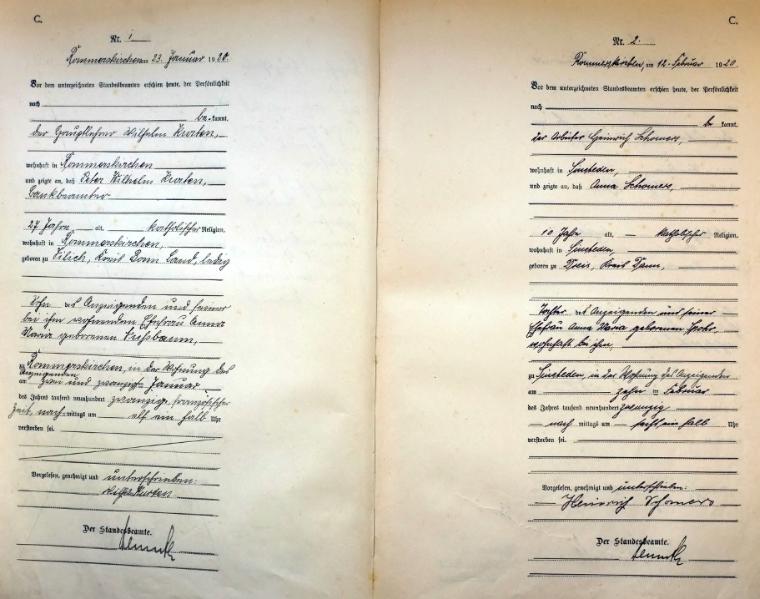 C.
Nr. 1
Rommerskirchen am 23. Januar 1920.
Vor dem unterzeichneten Standesbeamten erschien heute, der Persönlichkeit
nach
be kannt,
der Hauptlehrer Wilhelm Kürten,
wohnhaft in Rommerskirchen
und zeigte an, daß Peter Wilhelm Kürten,
Bankbeamter
27 Jahre alt, katholischer Religion,
wohnhaft in Rommerskirchen,
geboren zu Vilich, Kreis Bonn Land, ledig
Sohn des Anzeigenden und seiner
bei ihm wohnenden Ehefrau Anna
Maria geborenen
zu Rommerskirchen, in der Wohnung des
Anzeigenden
am zwei und zwanzigsten Januar
des Jahres tausend neunhundert zwanzig französischer
Zeit, nach mittags um elf ein halb Uhr
verstorben sei.
Vorgelesen, genehmigt und unterschrieben:
Wilh. Kürten
Der Standesbeamte.
C.
Nr. 2.
Rommerskirchen, am 12. Februar 1920
Vor dem unterzeichneten Standesbeamten erschien heute, der Persönlichkeit
nach
be kannt,
der Arbeiter Heinrich Schomers,
wohnhaft in Sinsteden,
und zeigte an, daß Anna Schomers,
10 Jahre alt, katholischer Religion,
wohnhaft in Sinsteden,
geboren zu Kreis Daun,
Tochter des Anzeigenden und seiner
Ehefrau Anna Maria geborenen
wohnhaft bei ihm,
zu Sinsteden, in der Wohnung des Anzeigenden
am zehn ten Februar
des Jahres tausend neunhundert zwanzig
nach mittags um ein halb Uhr
verstorben sei.
Vorgelesen, genehmigt und unterschrieben:
Heinrich Schomers
Der Standesbeamte.